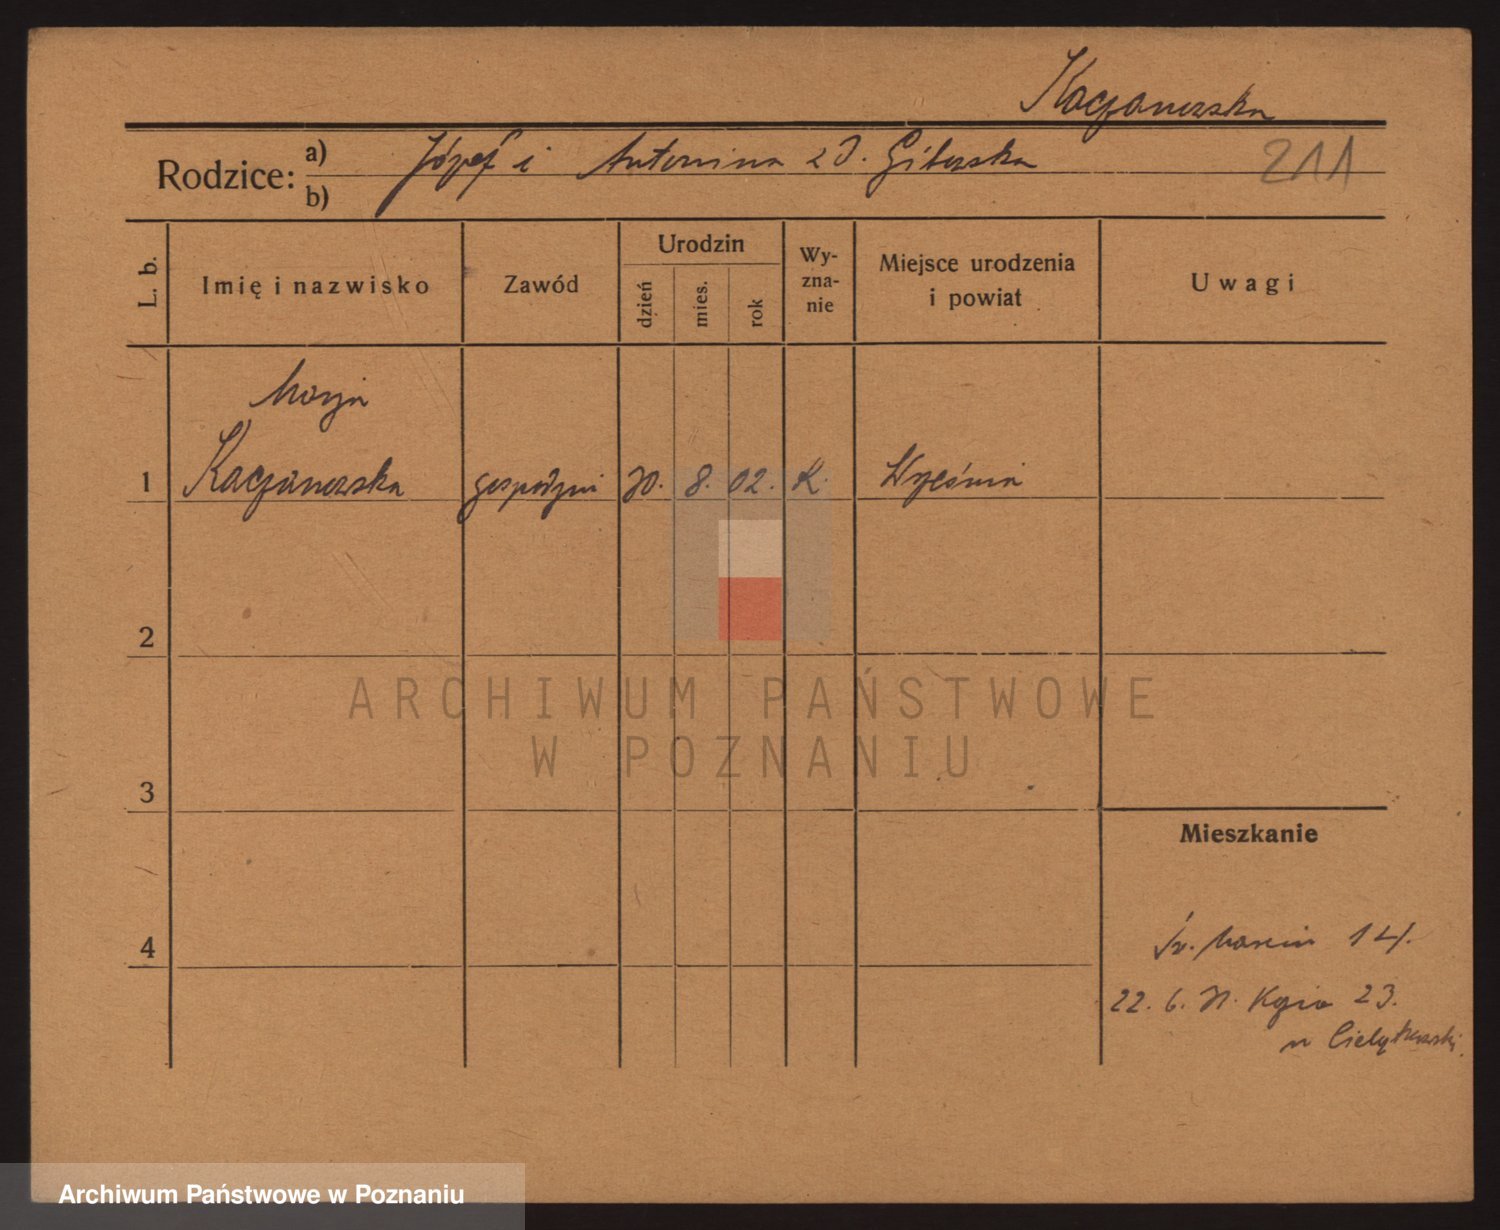 Kaczanowska
Rodzice: a) Józef i Antonina z d. Giberska
b)
211
L. b.
Imię i nazwisko
Zawód
Urodzin
dzień
mies.
rok
Wy-
zna-
nie
Miejsce urodzenia
i powiat
Uwagi
Marja
1 Kaczanowska gospodyni 30. 8. 02. K. Września
2
3
4
ARCHIWUM PAŃSTWOWE
W POZNANIU
Mieszkanie
Św. Marcin 14.
22. 6. 31. 23.
u
Archiwum Państwowe w Poznaniu